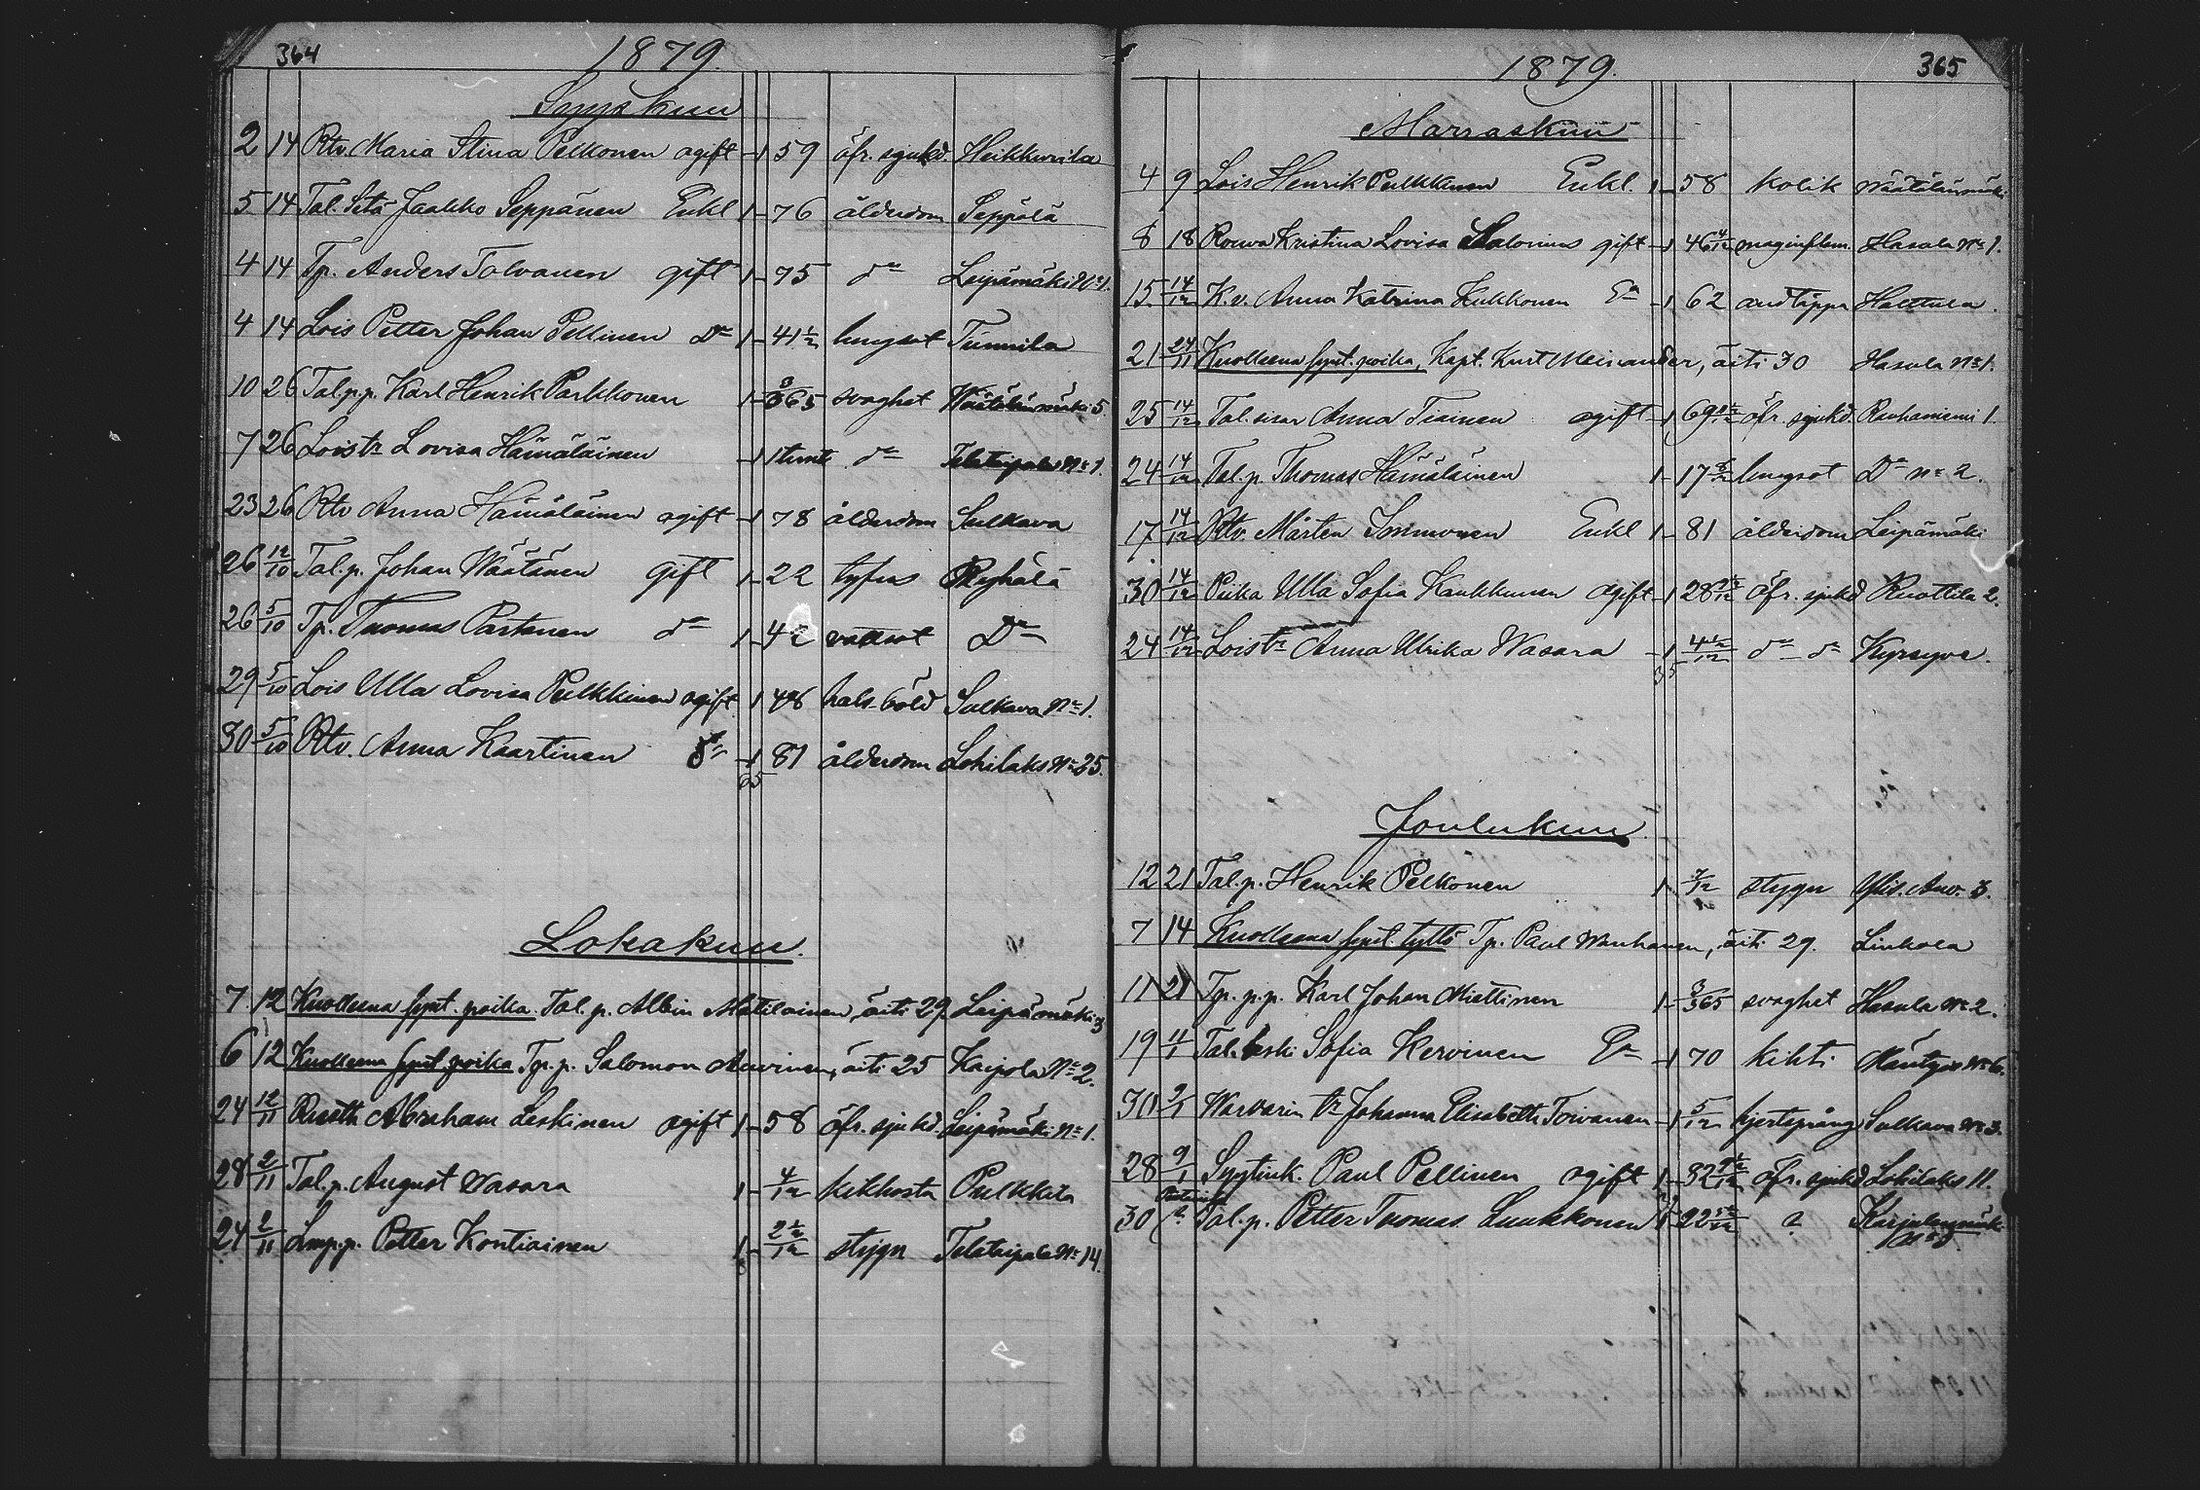 364
1879.
Syyskuu
2 14 Rtv. Maria Stina Pelkonen ogift -1 59 öfr. sjukd. Heikkurila
5 14 Tal. Setä Jaakko Seppänen Enkl 1- 76 ålderdom Seppälä
4 14 Tp. Anders Tolvanen gift 1- 75 do Leipämäki No 1.
4 14 Lois Petter Johan Pellinen Do 1- 41 1/2 lungsot Tunnila
10 26 Tal.p.p. Karl Henrik Parkkonen 1- 3/365 svaghet Väätälänmäki 5.
7 26 Loistr Lovisa Hämäläinen -1 1 timte do Telataipale No 1.
23 26 Rtv Anna Hämäläinen ogift -1 78 ålderdom Sulkava
26 12/10 Tal.p. Johan Väätänen gift 1- 22 tyfus Ryhälä
26 5/10 Tp. Tuomas Partanen do 1- 42 vattsot Do
29 5/10 Lois Ulla Lovisa Pulkkinen ogift 1 48 hals böld Sulkava No 1.
30 5/10 Rtv. Anna Kaartinen do -1 81 ålderdom Lohilaks No 25.
65
Lokakuu.
7 12 Kuolleena synt. poika. Tal. p. Albin Matilainen, äiti 29. Leipämäki 3
6 12 Kuolleena synt. poika Tp. p. Salomon Auvinen, äiti 25 Kaipola No 2.
24 12/11 Ruoth Abraham Leskinen ogift 1- 58 öfr. sjukd. Leipämäki No 1.
28 2/11 Tal. p. August Vasara 1- 4/12 kikhosta Pulkkila
24 2/11 Lmp.p. Petter Kontiainen 1- 2 1/2/12 stygn Telataipale No 14.
365
1879.
Marraskuu
4 9 Lois Henrik Pulkkinen Enkl. 1- 58 kolik Väätälänmäki
8 18 Rouva Kristina Lovisa Salonius gift -1 46 4/12 maginflam. Hasula No 1.
15 14/12 K.v. Anna Katrina Kukkonen Ea -1 62 andtäppa Halttula.
21 24/11 Kuolleena synt. poika, Kapt. Kurt Meinander, äiti 30 Hasula No 1.
25 14/12 Tal. sisar Anna Tiainen ogift -1 69 öfr. sjukd. Rauhaniemi 1.
24 14/12 Tal. p. Thomas Hämäläinen 1- 17 lungsot Do No 2.
17 14/12 Rtv. Mårten Immonen Enkl 1- 81 ålderdom Leipämäki
30 14/12 Piika Ulla Sofia Kaukkunen ogift -1 28 öfr. sjukd Ruottila 2.
24 14/12 Loistr Anna Ulrika Wasara -1 4 1/2/12 do do Kyrsyvä.
35
Joulukuu
12 21 Tal. p. Henrik Pelkonen 1- 7/12 stygn Ylis. Auv. 3.
7 14 Kuolleena synt tyttö Tp. Paul Wanhanen, äiti 29. Linkola
11 21 Tp. p.p. Karl Johan Miettinen 1- 3/365 svaghet Hasula No 2.
19 4/1 Tal. leski Sofia Kervinen Ea -1 70 kihti Käntys No 6.
30 2/1 Warvarin tr Johanna Elisabeth Toivanen -1 5/12 hjertsprång Sulkava No 3.
28 9/1 Syytink. Paul Pellinen ogift 1- 32 öfr. sjukd Lohilaks 11.
30 Tal. p. Petter Tuomas Luukkonen 22 ? Karjulanmäki No 5